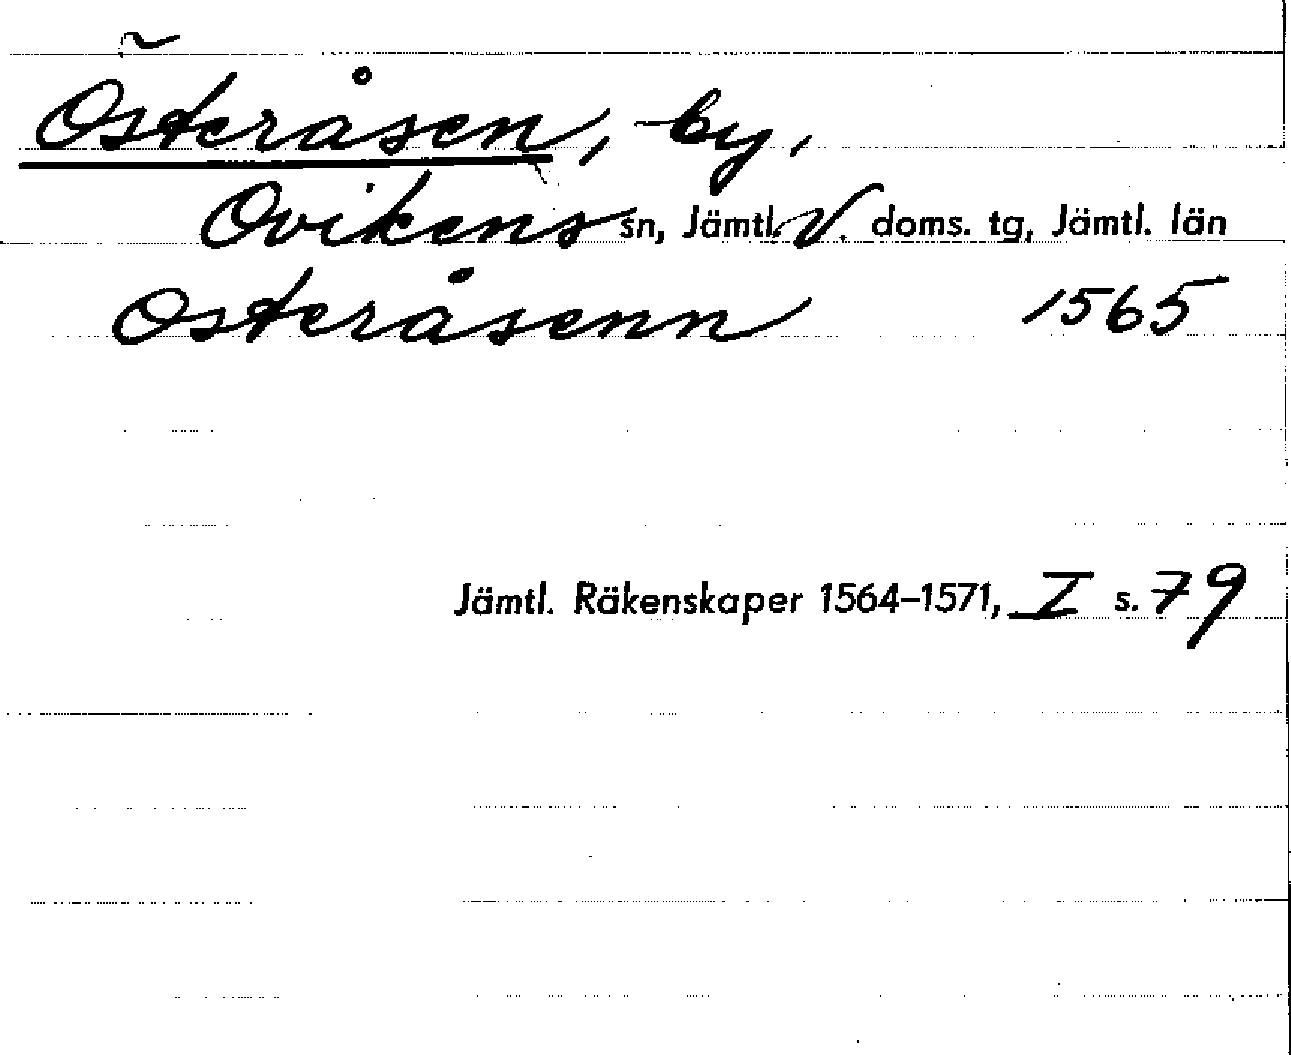 Österåsen, by,
Ovikens sn, Jämtl. V. doms. tg, Jämtl. län
Osteråsenn 1565
Jämtl. Räkenskaper 1564–1571, I s. 79